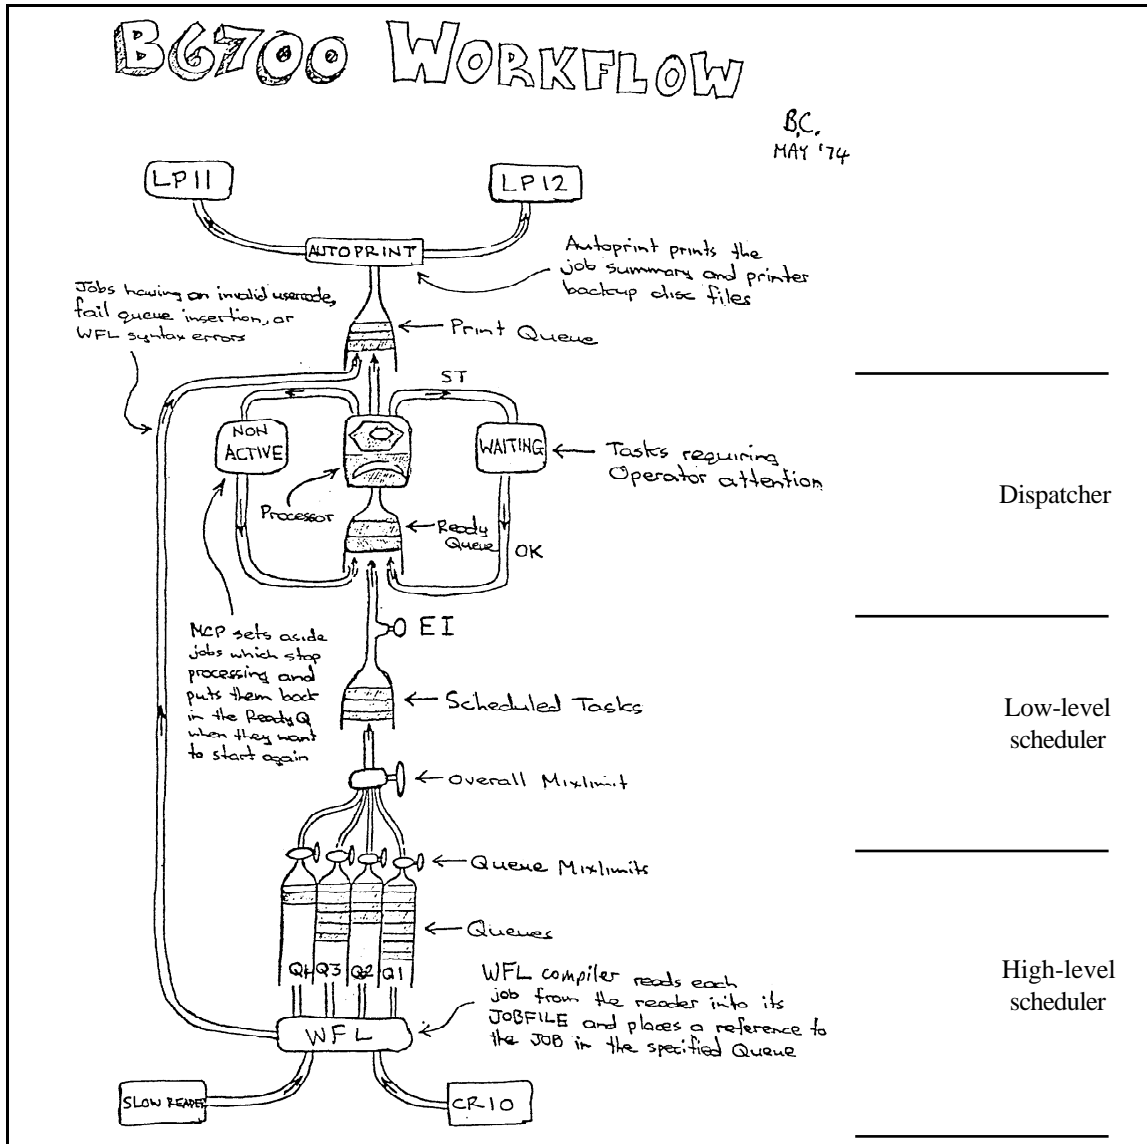 B6700 WORKFLOW
B.C.
MAY '74
LP11
LP12
AUTOPRINT
Autoprint prints the
job summary and printer
backup disc files
Jobs having an invalid usercode,
fail queue insertion, or
WFL syntax errors
Print Queue
ST
NON
ACTIVE
WAITING
Tasks requiring
Operator attention
Dispatcher
Processor
Ready
Queue
OK
EI
MCP sets aside
jobs which stop
processing and
puts them back
in the Ready Q
when they want
to start again
Scheduled Tasks
Low-level
scheduler
Overall Mixlimit
Queue Mixlimits
Queues
Q4 Q3 Q2 Q1
WFL compiler reads each
job from the reader into its
JOBFILE and places a reference to
the JOB in the specified Queue
High-level
scheduler
WFL
SLOW READER
CR10